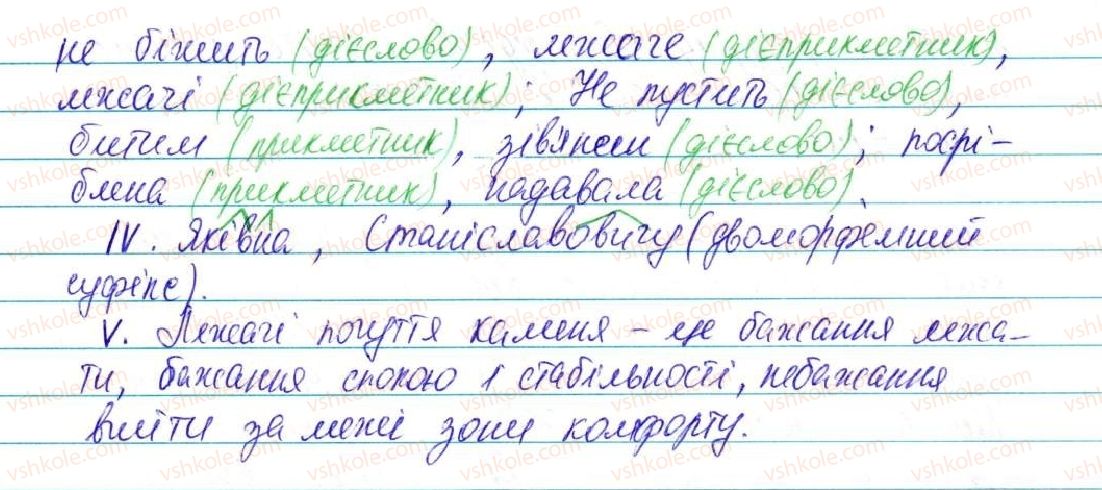 не біжить (дієслово), лежаче (дієприкметник),
лежачі (дієприкметник); Не пустить (дієслово),
битим (прикметник), зів'янеш (дієслово); посрі-
блена (прикметник), надавала (дієслово).
IV. Яківна, Станіславовичу (двоморфемний
суфікс).
V. Лежачі почуття каменя – це бажання лежа-
ти, бажання спокою і стабільності, небажання
вийти за межі зони комфорту.